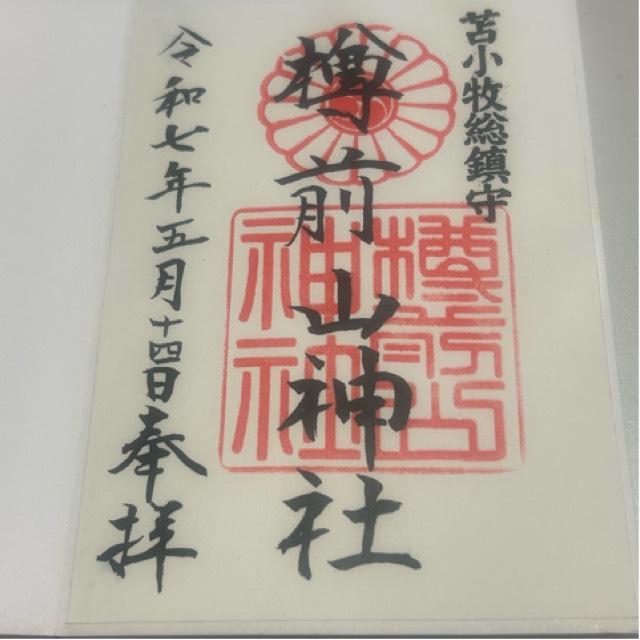 苫小牧総鎮守
樽前山神社
樽前山神社
令和七年五月十四日奉拝